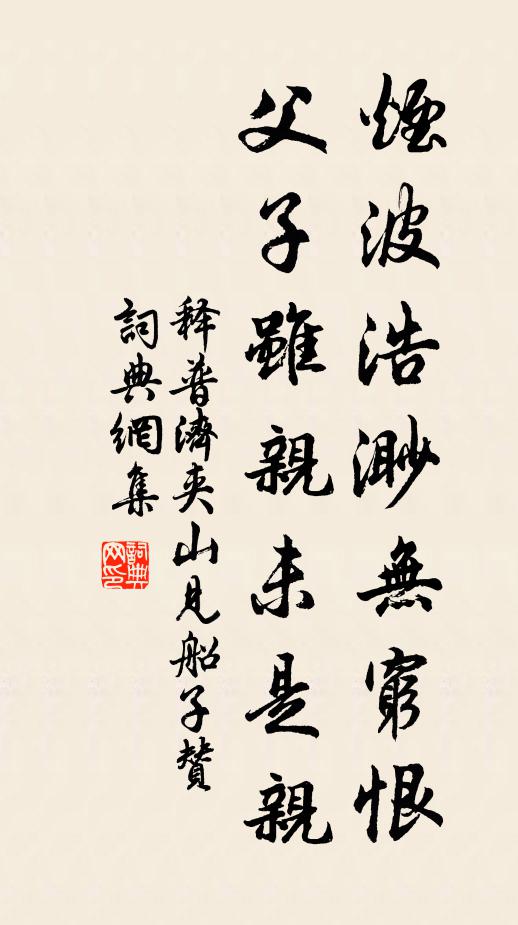 煙波浩渺無窮恨
父子雖親未是親
释普濟夾山見船子贊
詞典網集
詞典網印